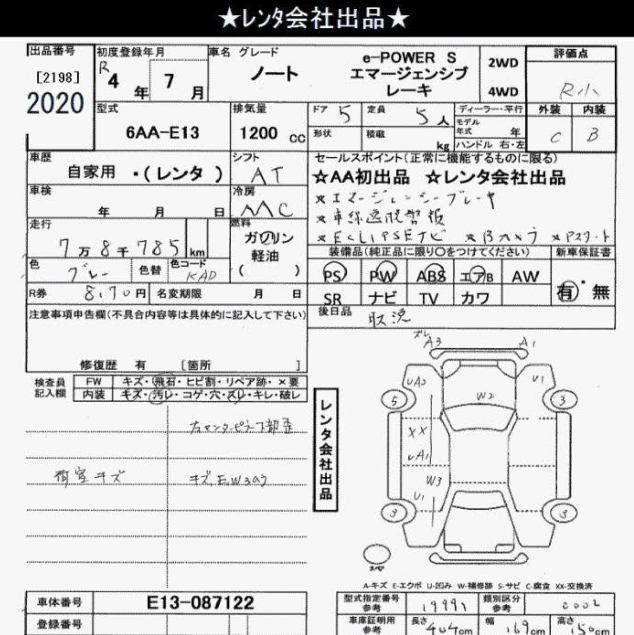 ★レンタ会社出品★
出品番号
[2198]
2020
初度登録年月
R4年 7月
車名 グレード
ノート e-POWER S
エマージェンシブレーキ
2WD
4WD
評価点
R小
外装 内装
C B
型式
6AA-E13
排気量
1200 cc
ドア 5 定員 5人
形状 積載 kg
ディーラー・平行
モデル年式 年
ハンドル 右・左
車歴
自家用 ・(レンタ )
シフト
AT
車検
年 月 日
冷房
AAC
走行
7万8千785 km
燃料
ガソリン
軽油
( )
色
グレー
色替
色コード
KAD
R券 8,170円
名変期限 月 日
セールスポイント(正常に機能するものに限る)
☆AA初出品 ☆レンタ会社出品
★エマージェンシーブレーキ
★車線逸脱警報
★ECLIPSEナビ ★Bカメラ ★Pスタート
装備品(純正品に限り○をつけてください)
PS PW ABS エアB AW
SR ナビ TV カワ
新車保証書
有・無
後日品
取説
注意事項申告欄(不具合内容等は具体的に記入して下さい)
修復歴 有 [箇所 ]
検査員記入欄
FW キズ・飛石・ヒビ割・リペア跡・×要
内装 キズ・汚レ・コゲ・穴・ズレ・キレ・破レ
右センターピラー下部歪
荷室キズ
キズE,W3あり
レンタ会社出品
ズレ A3 A1
UA2 U1
W2
5 3
XX
UA1
W3
U1
3 3
A-キズ E-エクボ U-凹み W-補修跡 S-サビ C-腐食 XX-交換済
車体番号 E13-087122
登録番号
型式指定番号参考 19991
類別区分参考 0002
車庫証明用参考
長さ 404cm 幅 169cm 高さ 150cm